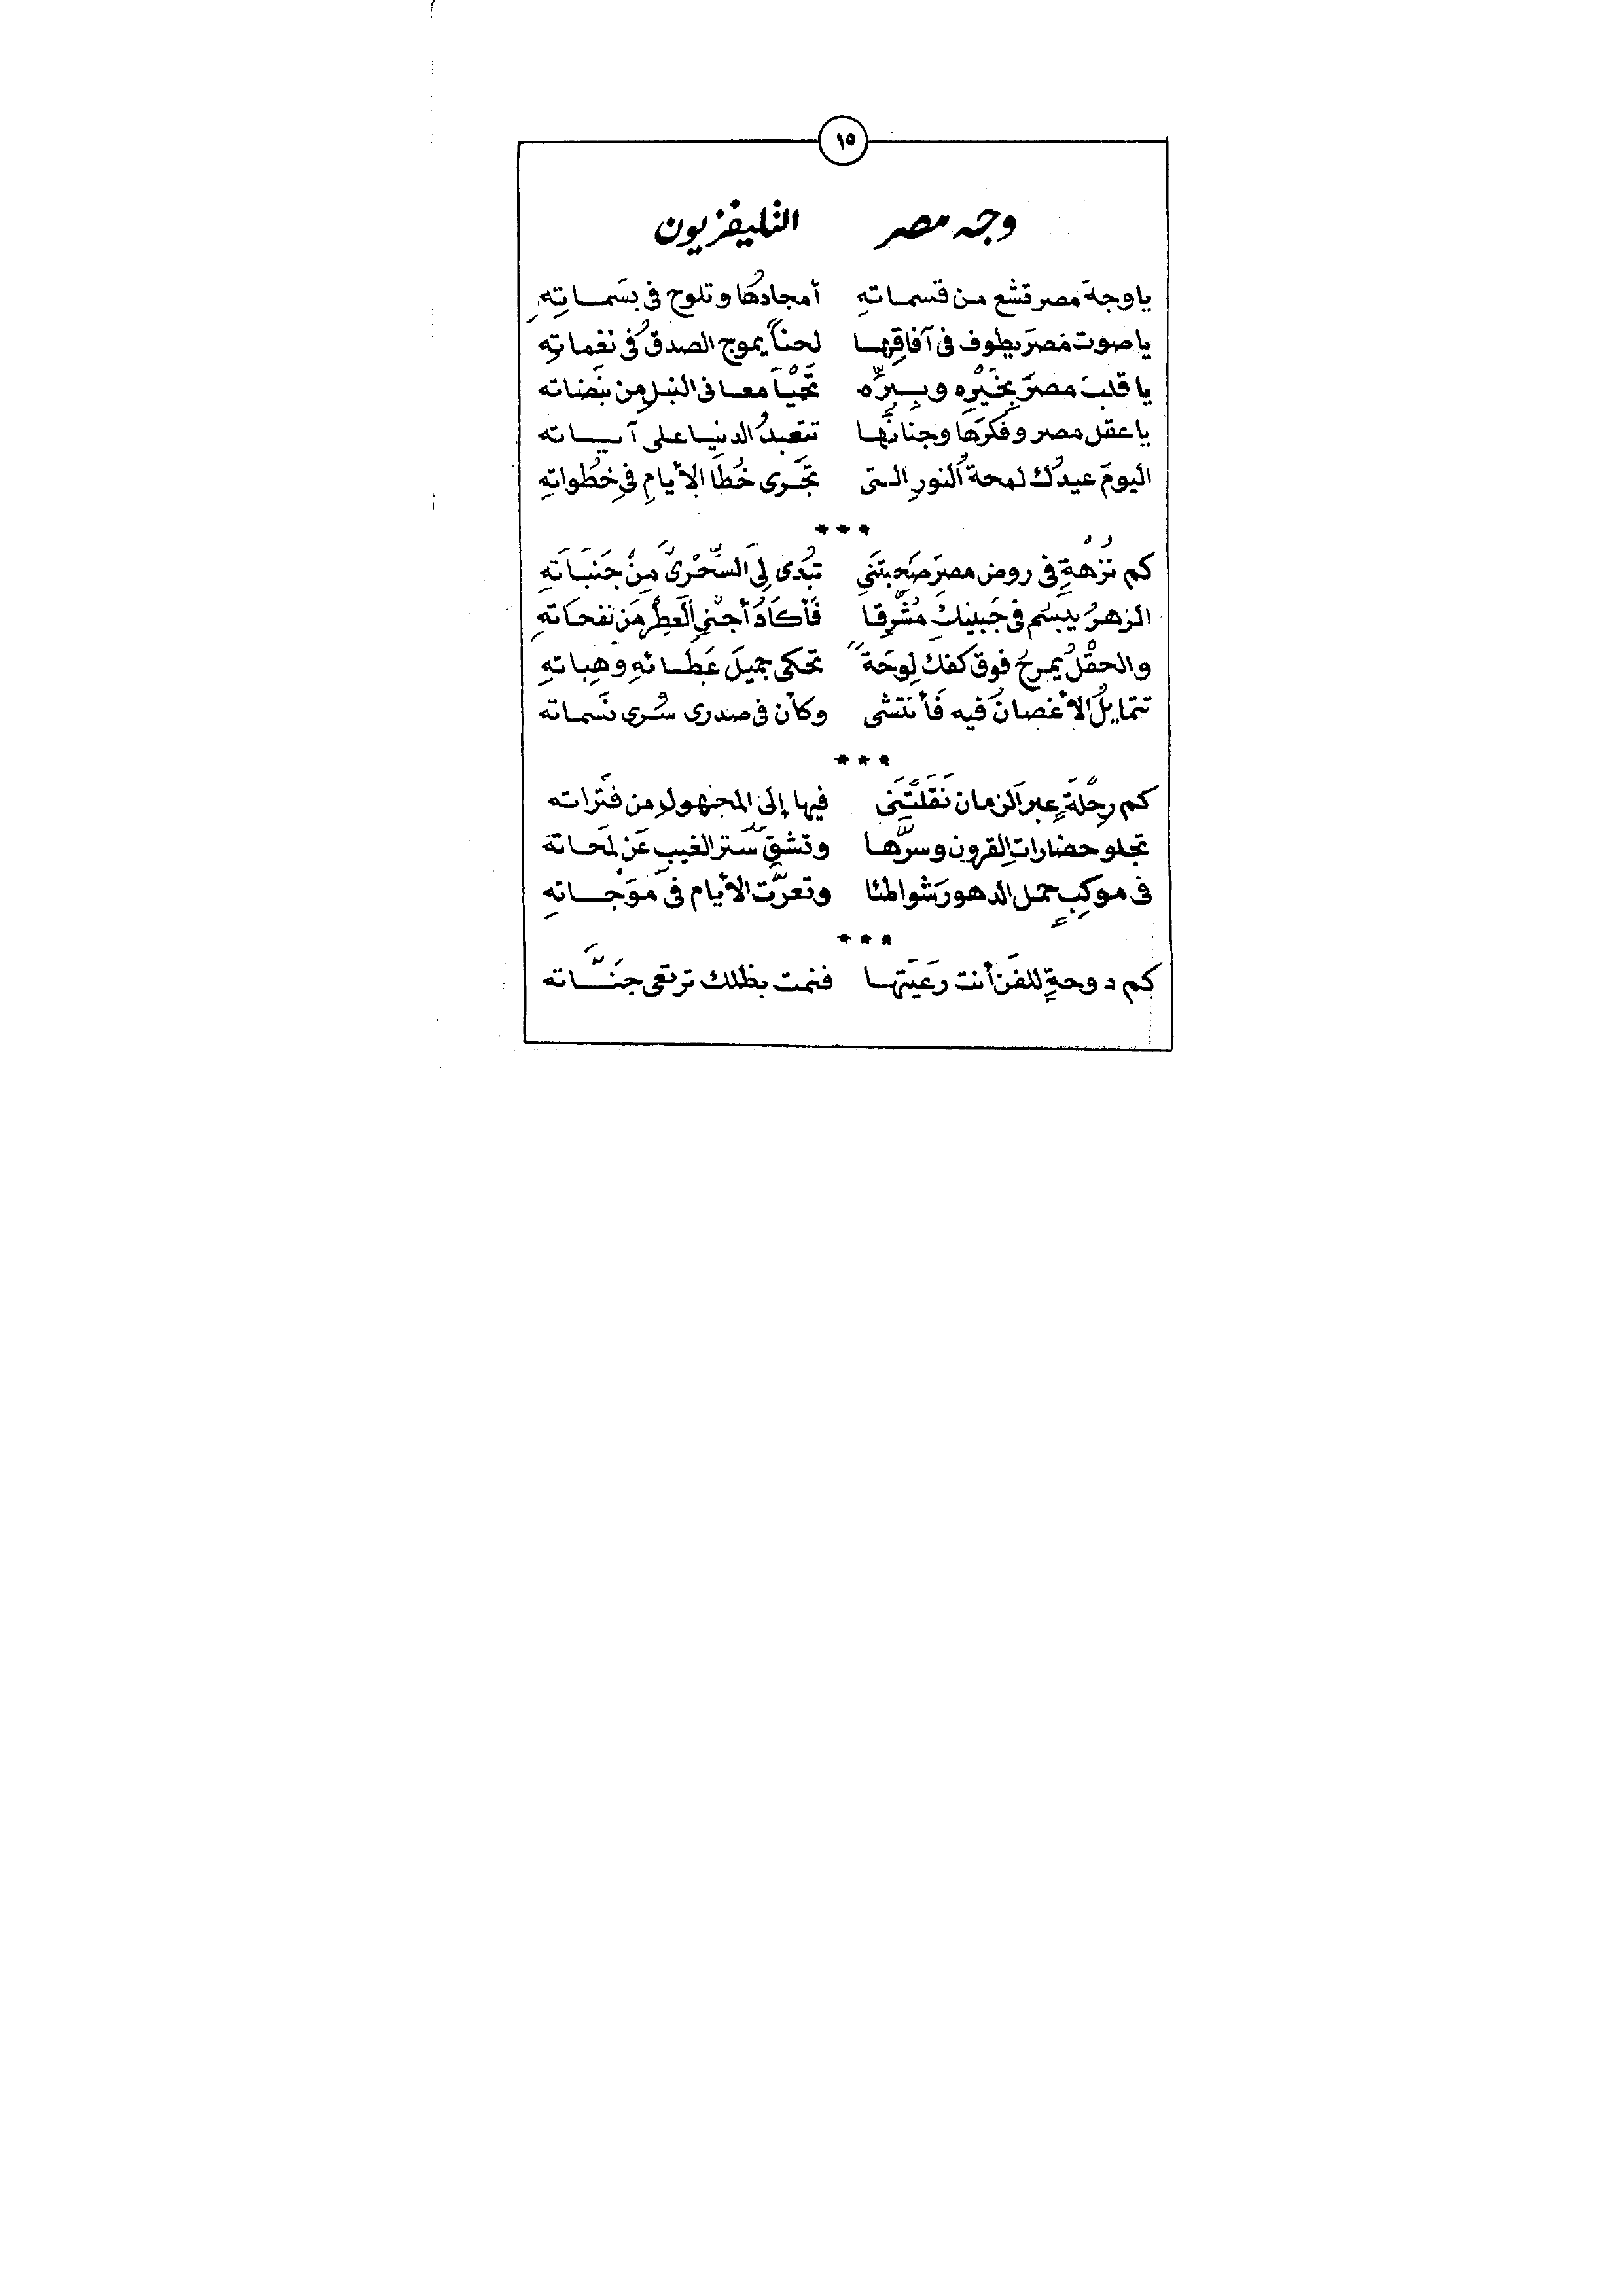 ١٥
وجه مصر التليفزيون
ياوجهَ مصر تشع من قسماتهِ أمجادُها وتلوح فى بسَماتِهِ
يا صوت مصرَ يطوف فى آفاقِها لحناً يموج الصدقُ فى نغماتِهِ
يا قلبَ مصرَ بِخَيْرِه وبِبِرِّه تَحْيَا معانى النبلِ من نبَضاته
يا عقل مصر وفكرَها وجنانَها تتعبدُ الدنيا على آياته
اليومَ عيدُك لمحةُ النورِ التى تجَرى خُطَا الأيامِ فى خُطُواتهِ
***
كم نُزْهةٍ فى روض مصرَ صَحِبتَنىِ تبُدى لِىَ السِّحْرىَّ مِنْ جَنَبَاتِهِ
الزهرُ يبسُم فى جَبينِكَ مُشْرِقا فَأكَادُ أجْنِى العَطِرَ من نَفحَاتهِ
والحقْلُ يمرحُ فوق كفك لوحَةً تحكى جميلَ عَطَائهِ وهِباتهِ
تتمايلُ الأغصانُ فيه فَأنتشى وكأن فى صدرى سُرى نَسماته
***
كم رِحْلَةٍ عبر الزمان نَقَلْتَنَى فيها إلى المجهولِ من فَتَراته
تجلو حضاراتِ القرون وسرَّها وتشق ستر الغيبِ عَن لمَحاته
فى موكِبٍ حمل الدهورَ شواطئا وتعرَّت الأيام فى موْجاتهِ
***
كم دوحةٍ للفن أنت رعَيَتها فنمت بظلك ترتقى جنَّاته